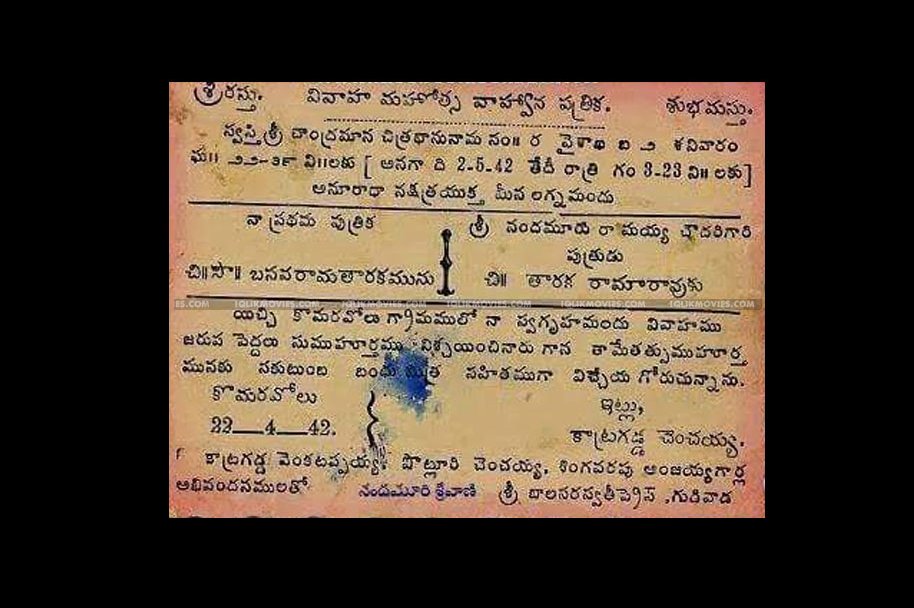 శ్రీరస్తు. వివాహ మహోత్స వాహ్వాన పత్రిక. శుభమస్తు.
స్వస్తిశ్రీ చాంద్రమాన చిత్రభానునామ సం॥ ర వైశాఖ బ ౨ శనివారం
ఘ॥ ౨౨-౩౯ వి॥లకు [ అనగా ది 2-5-42 తేదీ రాత్రి గం 3-23 ని॥ లకు]
అనూరాధా నక్షత్రయుక్త మీన లగ్నమందు
నా ప్రథమ పుత్రిక
చి॥సౌ॥ బసవరామతారకమును
శ్రీ నందమూరు రామయ్య చౌదరిగారి
పుత్రుడు
చి॥ తారక రామారావుకు
యిచ్చి కొమరవోలు గ్రామములో నా స్వగృహమందు వివాహము
జరుప పెద్దలు సుముహూర్తము నిశ్చయించినారు గాన తామేతత్సుముహూర్త
మునకు సకుటుంబ బంధు మిత్ర సహితముగా విచ్చేయ గోరుచున్నాను.
కొమరవోలు
22—4—42.
ఇట్లు,
కాట్రగడ్డ చెంచయ్య.
కాట్రగడ్డ వెంకటప్పయ్య, పొట్లూరి చెంచయ్య, శింగవరపు ఆంజయ్యగార్ల
అభివందనములతో నందమూరి శ్రీవాణి శ్రీ బాలసరస్వతీప్రెస్ ,గుడివాడ
IQLIKMOVIES.COM